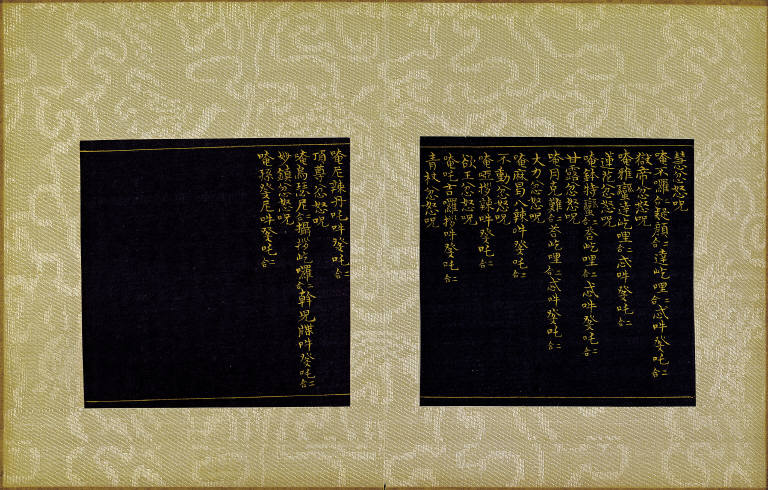 慧忿怒呪
唵不囉二合䟦頗二合達屹哩二合忒吽癹吒二合
獄帝忿怒呪
唵雅鑾達屹哩二合忒吽癹吒二合
蓮花忿怒呪
唵鉢特鑾二合荅屹哩二合忒吽癹吒二合
甘露忿怒呪
唵月克難二合荅屹哩二合忒吽癹吒二合
大力忿怒呪
唵麻曷八辣吽癹吒二合
不動忿怒呪
唵啞撈辣吽癹吒二合
欲王忿怒呪
唵吒吉囉撈吽癹吒二合
青杖忿怒呪
唵尼諫丹吒吽癹吒二合
頂尊忿怒呪
唵烏瑟尼二合攝撈屹囉二合斡兒牒吽癹吒二合
妙鎖忿怒呪
唵孫癹尼吽癹吒二合